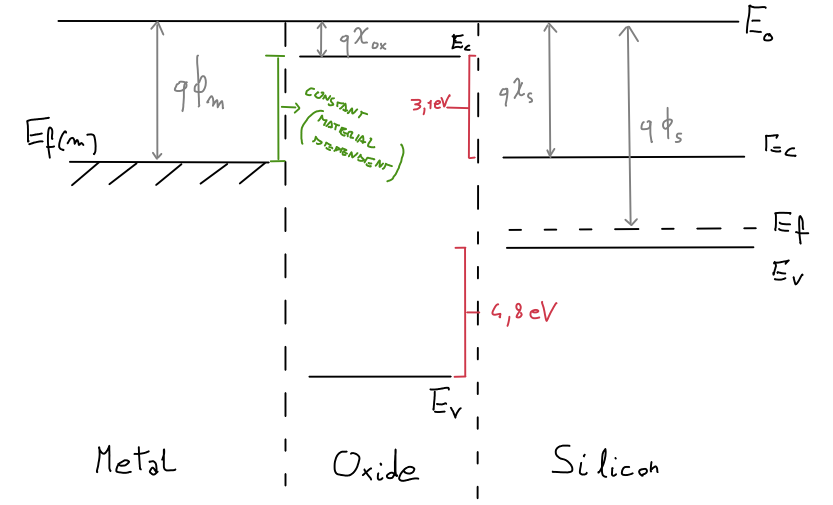 E₀
qχₒₓ
E_c
qϕ_m
CONSTANT
(MATERIAL
DEPENDENT)
3,1eV
qχ_s
qϕ_s
E_f(m)
E_c
E_f
E_v
4,8eV
E_v
Metal
Oxide
Silicon